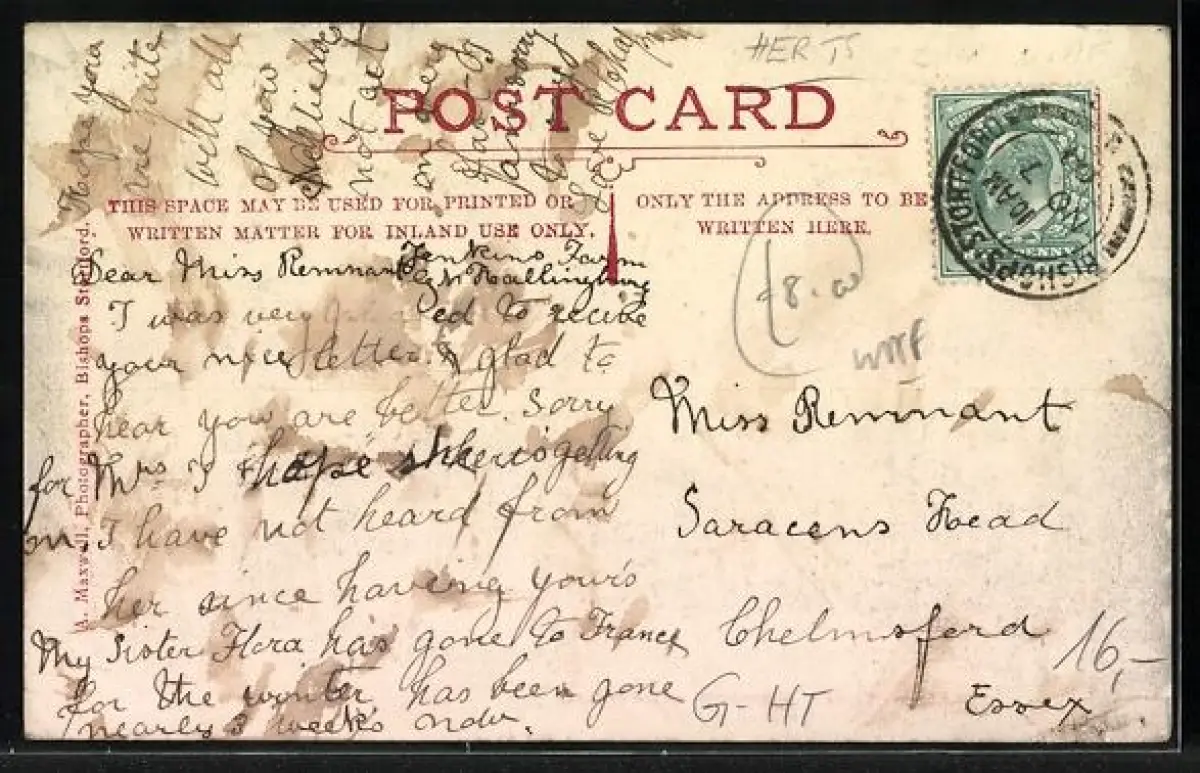 HERTS
POST CARD
THIS SPACE MAY BE USED FOR PRINTED OR
WRITTEN MATTER FOR INLAND USE ONLY.
ONLY THE ADDRESS TO BE
WRITTEN HERE.
A. Maxwell, Photographer, Bishops Stortford.
BISHOP'S STORTFORD
10 AM
NO 7
Hope you
are quite
well all
of you
not get
on very
Dear Miss Remnant
Jenkins Farm
Gt Hallingbury
I was very to recive
your nice letter & glad to
hear you are better. Sorry
for Mrs I hope she is getting
on I have not heard from
her since having yours
My Sister Flora has gone to France
for the winter, has been gone
nearly 3 weeks now.
Miss Remnant
Saracens Head
Chelmsford
Essex
16,-
G-HT